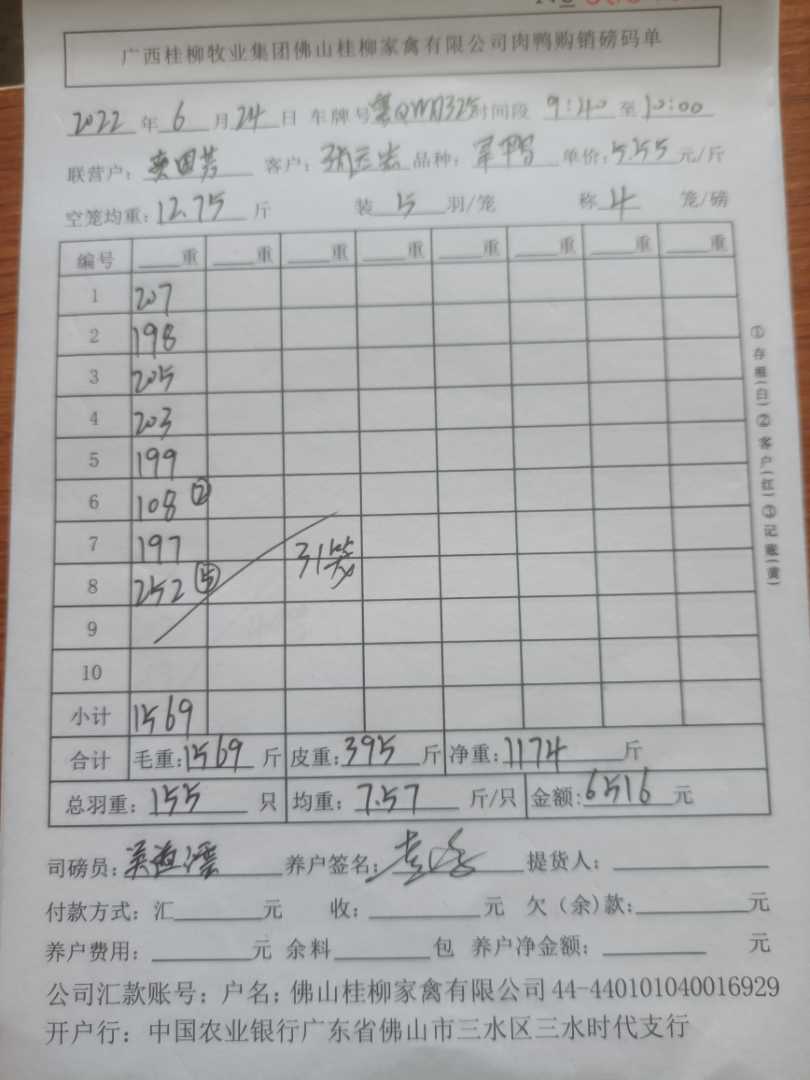 广西桂柳牧业集团佛山桂柳家禽有限公司肉鸭购销磅码单
2022年6月24日 车牌号 时间段 9:40至10:00
联营户: 客户: 品种: 单价:5.55元/斤
空笼均重:12.75斤 装5羽/笼 称4笼/磅
编号 重 重 重 重 重 重 重 重
1 207
2 198
3 205
4 203
5 199
6 108 ②
7 197 31笼
8 252 ⑤
9
10
小计 1569
合计 毛重:1569斤 皮重:395斤 净重:1174斤
总羽重:155只 均重:7.57斤/只 金额:6516元
司磅员: 养户签名: 提货人:
付款方式:汇 元 收: 元 欠(余)款: 元
养户费用: 元 余料 包 养户净金额: 元
公司汇款账号:户名:佛山桂柳家禽有限公司44-440101040016929
开户行:中国农业银行广东省佛山市三水区三水时代支行
①存根(白)②客户(红)③记账(黄)